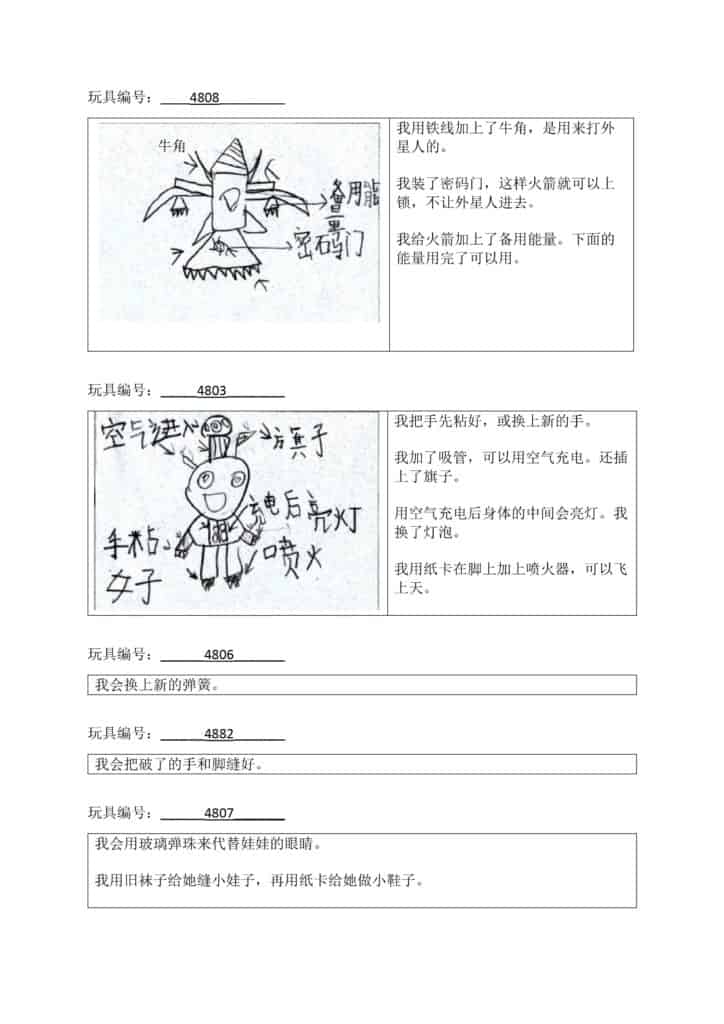 玩具编号：4808
牛角
备用能
量
密码门
我用铁线加上了牛角，是用来打外
星人的。
我装了密码门，这样火箭就可以上
锁，不让外星人进去。
我给火箭加上了备用能量。下面的
能量用完了可以用。
玩具编号：4803
空气进入
旗子
充电后亮灯
手粘
好
喷火
我把手先粘好，或换上新的手。
我加了吸管，可以用空气充电。还插
上了旗子。
用空气充电后身体的中间会亮灯。我
换了灯泡。
我用纸卡在脚上加上喷火器，可以飞
上天。
玩具编号：4806
我会换上新的弹簧。
玩具编号：4882
我会把破了的手和脚缝好。
玩具编号：4807
我会用玻璃弹珠来代替娃娃的眼睛。
我用旧袜子给她缝小娃子，再用纸卡给她做小鞋子。